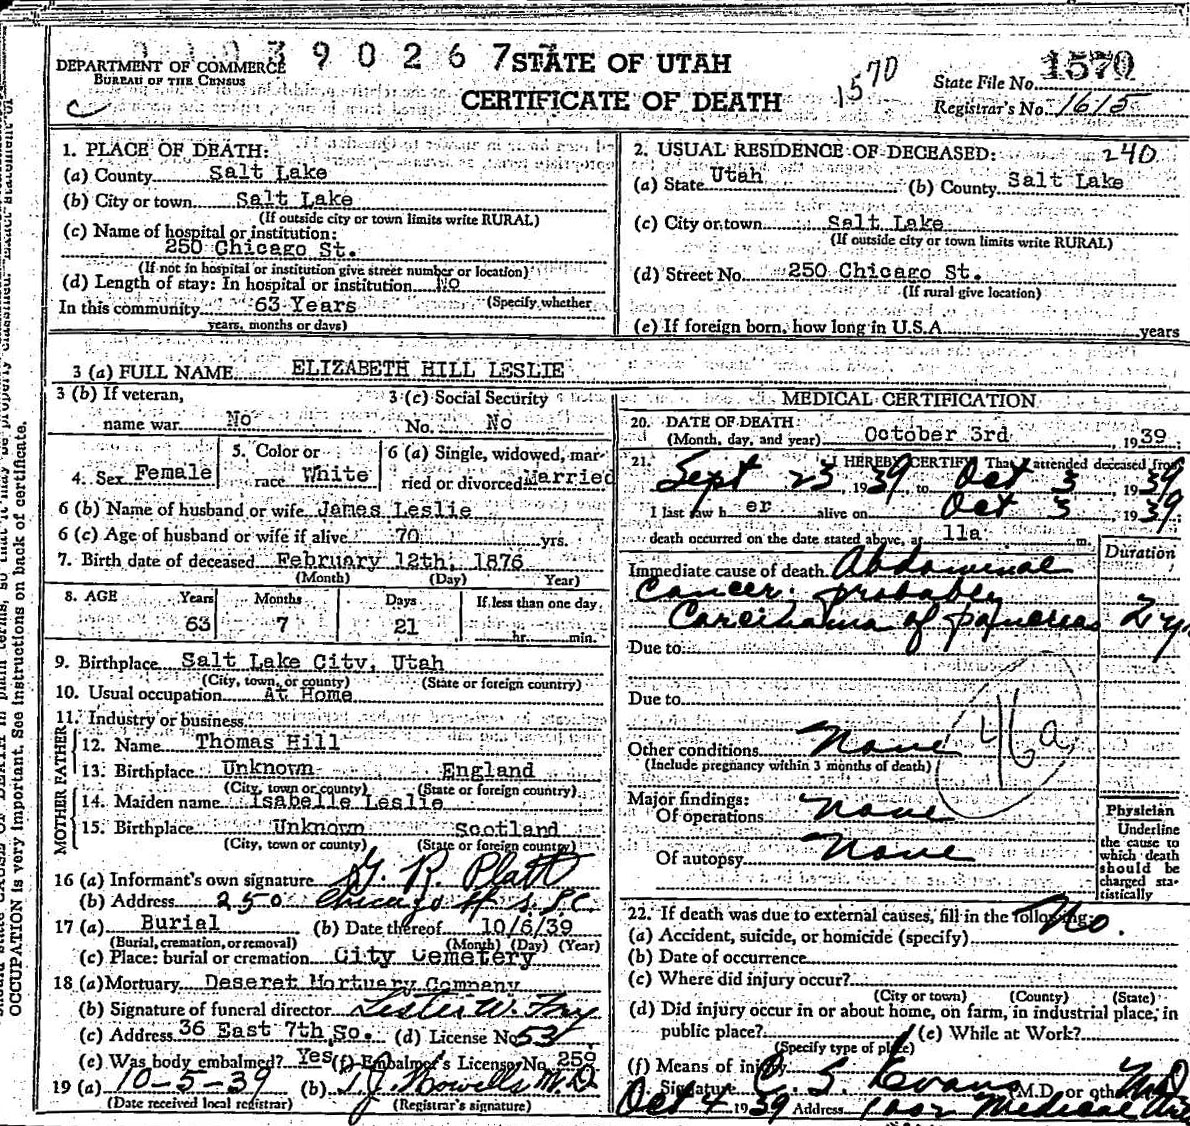 390267
DEPARTMENT OF COMMERCE
BUREAU OF THE CENSUS
STATE OF UTAH
CERTIFICATE OF DEATH
1570
State File No. 1570
Registrar's No. 1615
1. PLACE OF DEATH:
(a) County Salt Lake
(b) City or town Salt Lake
(If outside city or town limits write RURAL)
(c) Name of hospital or institution:
250 Chicago St.
(If not in hospital or institution give street number or location)
(d) Length of stay: In hospital or institution No
(Specify whether
In this community 63 Years
years, months or days)
2. USUAL RESIDENCE OF DECEASED: 240
(a) State Utah (b) County Salt Lake
(c) City or town Salt Lake
(If outside city or town limits write RURAL)
(d) Street No. 250 Chicago St.
(If rural give location)
(e) If foreign born, how long in U.S.A. years
3 (a) FULL NAME ELIZABETH HILL LESLIE
3 (b) If veteran, name war No
3 (c) Social Security No. No
4. Sex Female
5. Color or race White
6 (a) Single, widowed, married or divorced Married
6 (b) Name of husband or wife James Leslie
6 (c) Age of husband or wife if alive 70 yrs.
7. Birth date of deceased February 12th, 1876
(Month) (Day) Year)
8. AGE Years Months Days If less than one day
63 7 21 hr. min.
9. Birthplace Salt Lake City, Utah
(City, town, or county) (State or foreign country)
10. Usual occupation At Home
11. Industry or business
FATHER
12. Name Thomas Hill
13. Birthplace Unknown England
(City, town or county) (State or foreign country)
MOTHER
14. Maiden name Isabelle Leslie
15. Birthplace Unknown Scotland
(City, town or county) (State or foreign country)
16 (a) Informant's own signature G. R. Platt
(b) Address 250 Chicago
17 (a) Burial (b) Date thereof 10/6/39
(Burial, cremation, or removal) (Month) (Day) (Year)
(c) Place: burial or cremation City Cemetery
18 (a) Mortuary Deseret Mortuary Company
(b) Signature of funeral director
(c) Address 36 East 7th So. (d) License No. 53
(e) Was body embalmed? Yes (f) Embalmer's License No. 259
19 (a) 10-5-39 (b) T. J. Howells M. D.
(Date received local registrar) (Registrar's signature)
MEDICAL CERTIFICATION
20. DATE OF DEATH:
(Month, day, and year) October 3rd, 1939
21. I HEREBY CERTIFY, That I attended deceased from
Sept 23, 1939, to Oct 3, 1939
I last saw her alive on Oct 3, 1939,
death occurred on the date stated above, at 11a m.
Duration
Immediate cause of death Abdominal
Cancer probably
Carcinoma of pancreas 2 yr
Due to
Due to
46a
Other conditions None
(Include pregnancy within 3 months of death)
Major findings:
Of operations None
Of autopsy None
Physician
Underline the cause to which death should be charged statistically
22. If death was due to external causes, fill in the following:
(a) Accident, suicide, or homicide (specify) No.
(b) Date of occurrence
(c) Where did injury occur?
(City or town) (County) (State)
(d) Did injury occur in or about home, on farm, in industrial place, in
public place? (e) While at Work?
(Specify type of place)
(f) Means of injury
Signature C. S. Evans (M.D. or other) M.D.
Oct 4 1939 Address Medical Arts
OCCUPATION is very important. See instructions on back of certificate.